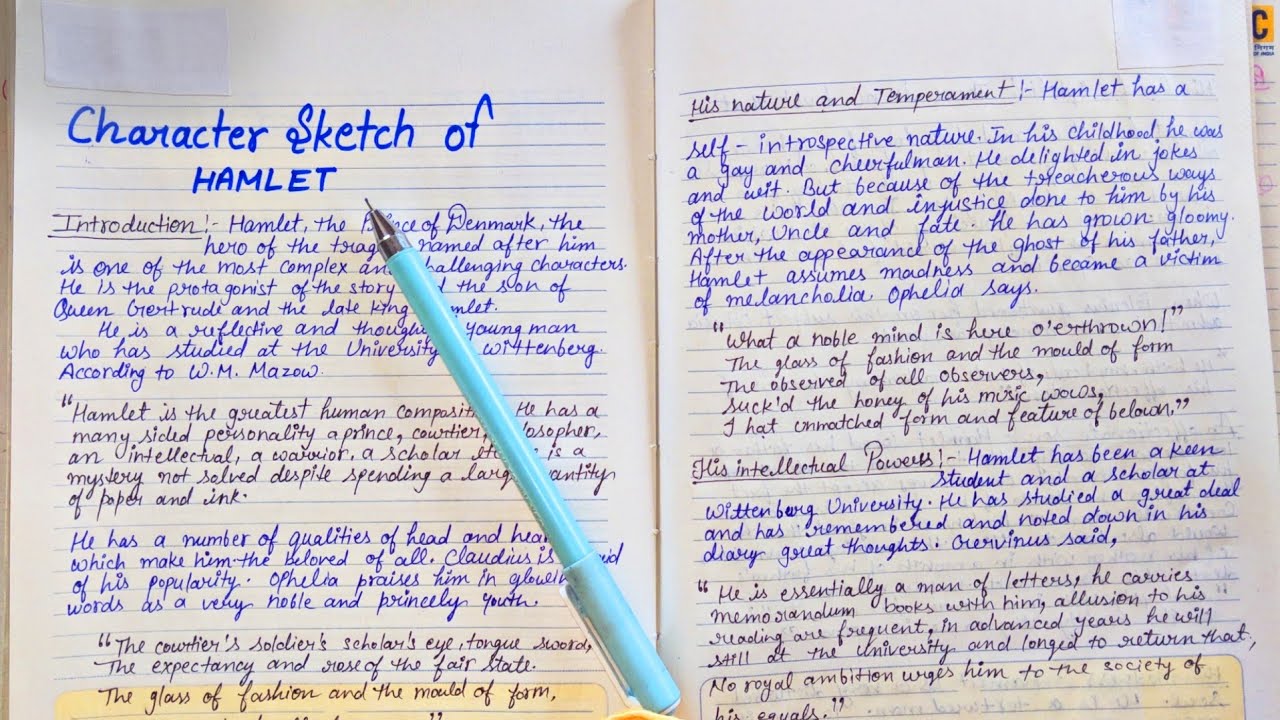 Character Sketch of
HAMLET
Introduction :- Hamlet, the Prince of Denmark, the
hero of the named after him
is one of the most complex and challenging characters.
He is the protagonist of the story the son of
Queen Gertrude and the late king
He is a reflective and young man
who has studied at the University Wittenberg.
According to W.M. Mazow.
"Hamlet is the greatest human He has a
many sided personality a prince, courtier,
an intellectual, a warrior, a scholar is a
mystery not solved despite spending a
of paper and ink.
He has a number of qualities of head and
which make him the beloved of all. Claudius is
of his popularity. Ophelia praises him in
words as a very noble and princely youth.
"The courtier's soldier's scholar's eye, tongue sword,
The expectancy and rose of the fair state.
The glass of fashion and the mould of form,
His nature and Temperament :- Hamlet has a
self - introspective nature. In his childhood he was
a gay and cheerfulman. He delighted in jokes
and wit. But because of the treacherous ways
of the world and injustice done to him by his
mother, Uncle and fate. He has grown gloomy.
After the appearance of the ghost of his father,
Hamlet assumes madness and became a victim
of melancholia. Ophelia says.
"What a noble mind is here o'erthrown!"
The glass of fashion and the mould of form
The observed of all observers,
Suck'd the honey of his music vows,
That unmatched form and feature of belown."
His intellectual Powers :- Hamlet has been a keen
student and a scholar at
Wittenberg University. He has studied a great deal
and has remembered and noted down in his
diary great thoughts. Gervinus said,
"He is essentially a man of letters, he carries
memorandum books with him, allusion to his
reading are frequent, in advanced years he will
still at the University and longed to return that,
No royal ambition urges him to the society of
his equals."
C